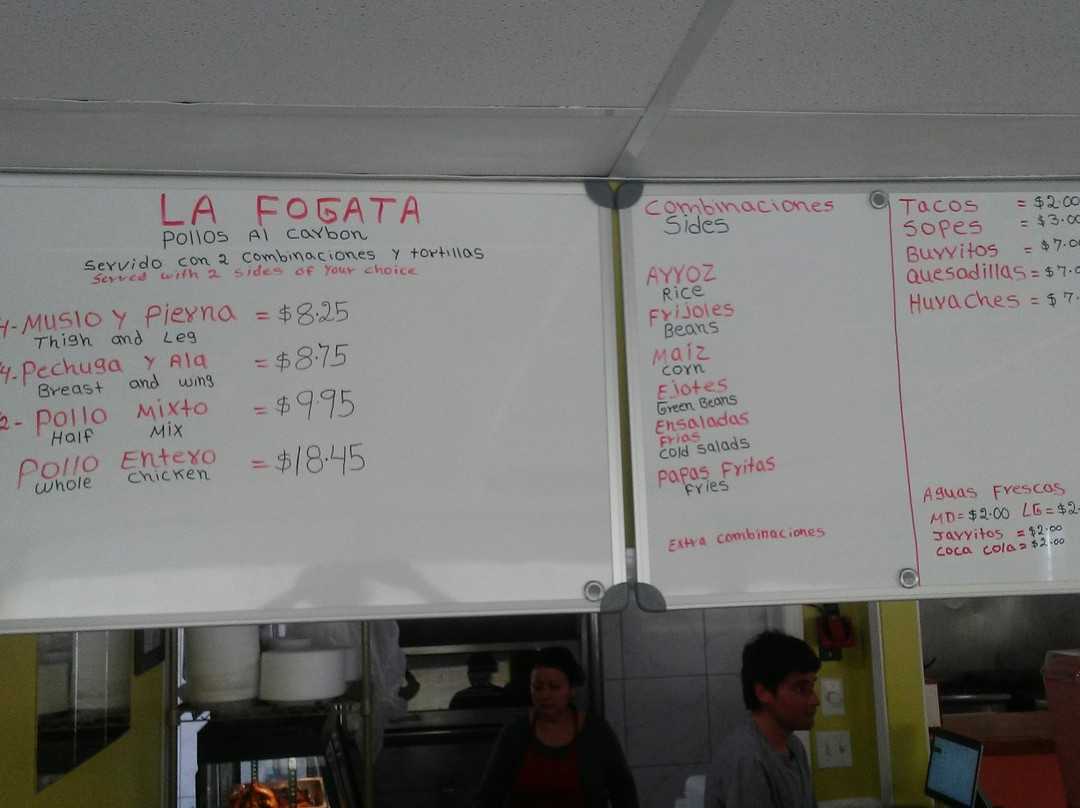 LA FOGATA
Pollos Al Carbon
servido con 2 combinaciones y tortillas
Served with 2 sides of Your choice
4-Muslo y Pierna = $8.25
Thigh and Leg
4-Pechuga y Ala = $8.75
Breast and wing
2- Pollo Mixto = $9.95
Half Mix
Pollo Entero = $18.45
whole chicken
Combinaciones
Sides
Arroz
Rice
Frijoles
Beans
Maíz
corn
Ejotes
Green Beans
Ensaladas
Frias
cold salads
Papas Fritas
Fries
Extra combinaciones
Tacos = $2.00
Sopes = $3.00
Burritos = $7.0
Quesadillas = $7.
Huraches = $7.
Aguas Frescas
MD=$2.00 LG=$2.
Jarritos = $2.00
coca cola = $2.00